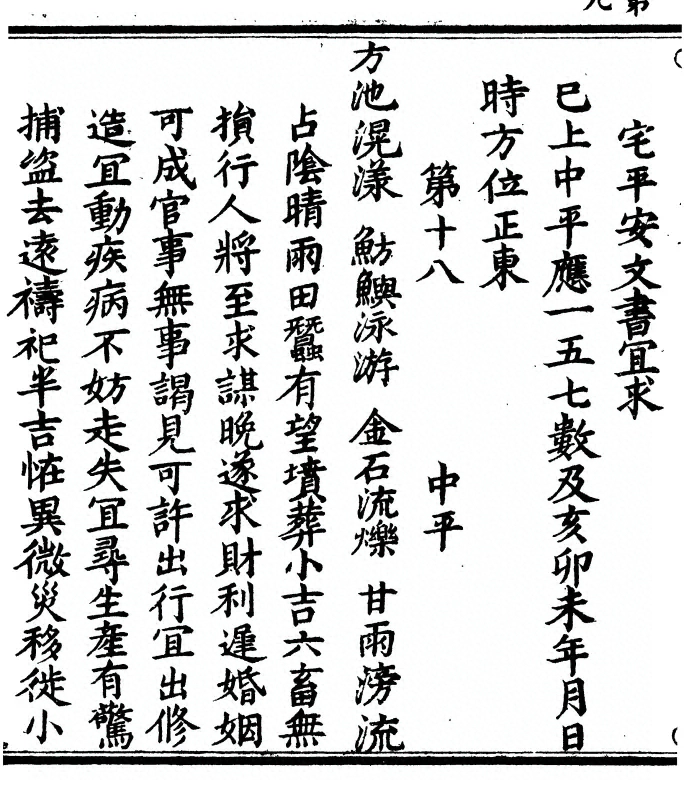 宅平安文書冝求
已上中平應一五七數及亥卯未年月日
時方位正東
第十八 中平
方池滉漾 魴鱮泳游 金石流爍 甘雨滂流
占隂晴雨田蠶有望墳葬小吉六畜無
損行人將至求謀晚遂求財利遲婚姻
可成官事無事謁見可許出行冝出修
造冝動疾病不妨走失冝尋生產有驚
捕盜去遠禱祀半吉恠異微災移徙小